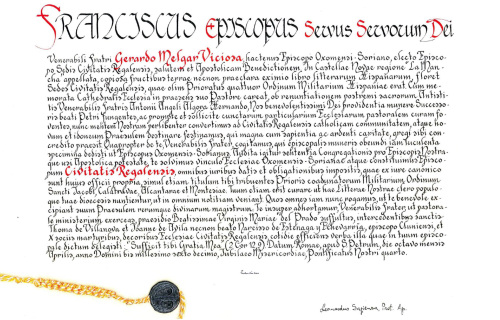 FRANCISCUS EPISCOPUS SERVUS SERVORUM DEI
Venerabili Fratri Gerardo Melgar Viciosa, hactenus Episcopo Oxomensi-Soriano, electo Episco-
po Sedis Civitatis Regalensis, salutem et Apostolicam Benedictionem. In Castellae Novae regione La Man-
cha appellata, copiosa fructibus terrae necnon praeclara eximio libro litterarum Hispaniarum, floret
Sedes Civitatis Regalensis, quae olim Prioratus quattuor Ordinum Militarium Hispaniae erat. Cum me-
morata Cathedralis Ecclesia in praesens suo Pastore careat, ob renuntiationem postremi sacrorum Antisti-
tis Venerabilis Fratris Antonii Angeli Algora Hernando, Nos benevolentissimi Dei providentia munere Successo-
ris beati Petri fungentes, ac prompte et sollicite cunctarum particularium Ecclesiarum pastoralem curam fo-
ventes, nunc mentem Nostram perlibenter convertimus ad Civitatis Regalensis catholicam communitatem, atque no-
vum et idoneum Praesulem destinare festinamus, qui magna cum sapientia ac ardenti caritate, gregi sibi con-
credito praesit. Quapropter de te, Venerabilis Frater, cogitamus, qui episcopalis muneris obeundi iam luculenta
specimina dedisti ut Episcopus Oxomensis-Sorianus. Audita igitur sententia Congregationis pro Episcopis, Nost-
ra usi Apostolica potestate, te solvimus vinculo Ecclesiae Oxomensis-Sorianae atque constituimus Episcopum
Civitatis Regalensis, omnibus iuribus datis et obligationibus impositis, quae ex iure canonico
sunt huius officii propria, simul etiam, titulum tibi tribuentes Prioris coadunatorum Militarium Ordinum
Sancti Jacobi, Calatravae, Alcantarae et Montesae. Tuum etiam erit curare ut hae Litterae Nostrae clero populo-
que tuae dioecesis nuntientur, ut in omnium notitiam veniant. Quos omnes iam nunc rogamus, ut te benevole ex-
cipiant suum Praesulem rerumque divinarum magistrum. Te insuper adhortamur, Venerabilis Frater, ut pastora-
le ministerium, exerceas, praesidio Beatissimae Virginis Mariae "del Prado" suffultus, intercedentibus sanctis
Thoma de Villanova et Ioanne de Avila necnon beato Narcisso de Estenaga y Echevarria, episcopo Cluniensi, et
X sociis martyribus, decoribus Ecclesiae Civitatis Regalensis, cotidie efficiens verba illa quae in tuum episco-
pale dictum delegisti: "Sufficit tibi Gratia Mea" (2 Cor 12,9). Datum Romae, apud S. Petrum, die octavo mensis
Aprilis, anno Domini bis millesimo sexto decimo, Iubilaeo Misericordiae, Pontificatus Nostri quarto.
Franciscus
Leonardus Sapienza, Prot. Ap.